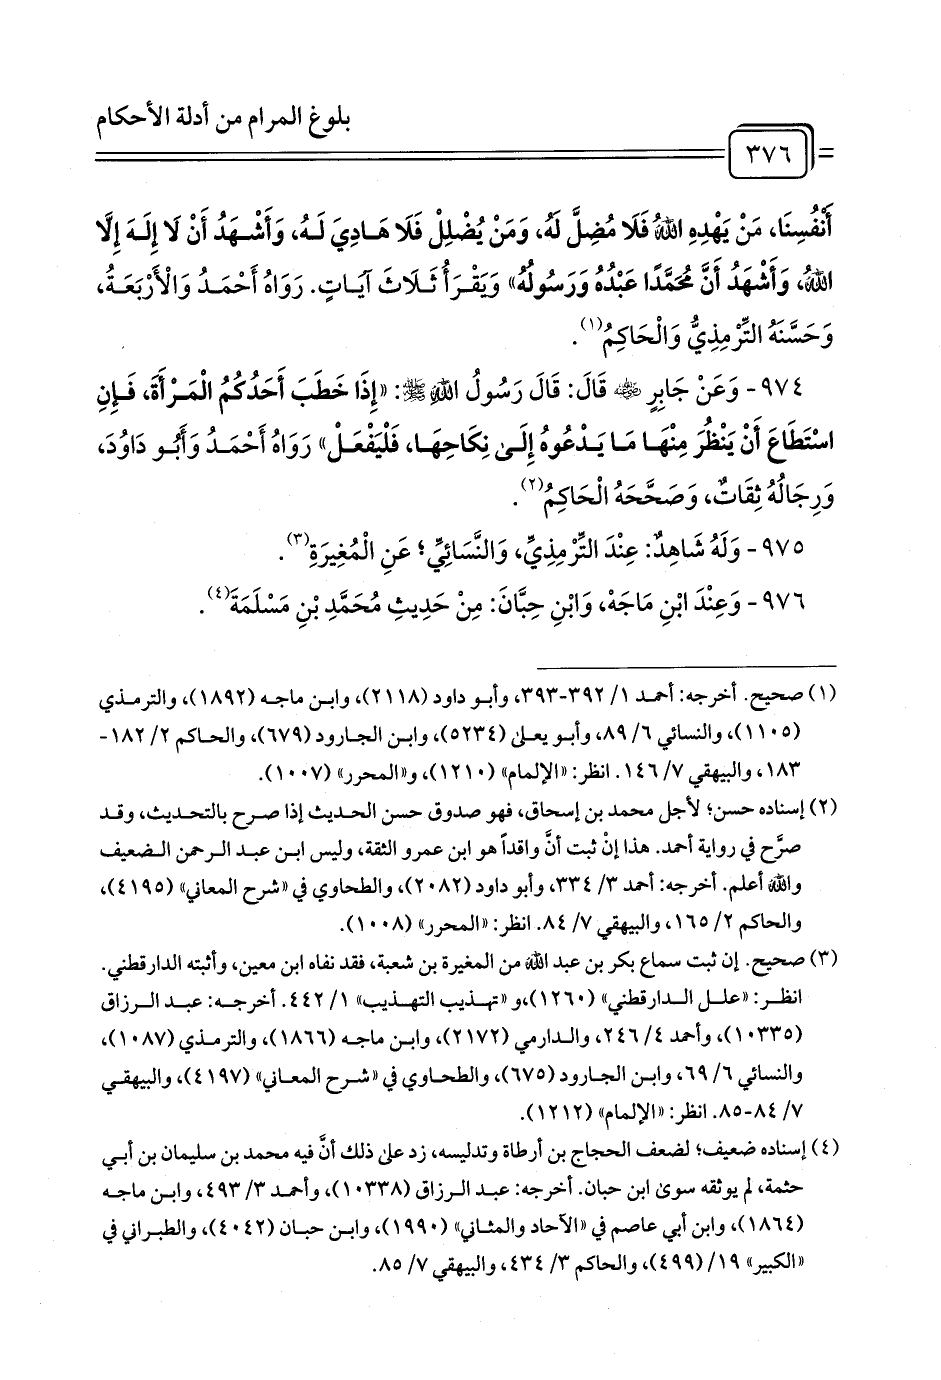 بلوغ المرام من أدلة الأحكام
٣٧٦
أَنْفُسِنَا، مَنْ يَهْدِهِ اللهُ فَلَا مُضِلَّ لَهُ، وَمَنْ يُضْلِلْ فَلَا هَادِيَ لَهُ، وَأَشْهَدُ أَنْ لَا إِلَهَ إِلَّا
اللهُ، وَأَشْهَدُ أَنَّ مُحَمَّدًا عَبْدُهُ وَرَسُولُهُ» وَيَقْرَأُ ثَلَاثَ آيَاتٍ. رَوَاهُ أَحْمَدُ وَالْأَرْبَعَةُ،
وَحَسَّنَهُ التِّرْمِذِيُّ وَالْحَاكِمُ(١).
٩٧٤- وَعَنْ جَابِرٍ رضي الله عنه قَالَ: قَالَ رَسُولُ اللهِ ﷺ: «إِذَا خَطَبَ أَحَدُكُمُ الْمَرْأَةَ، فَإِنِ
اسْتَطَاعَ أَنْ يَنْظُرَ مِنْهَا مَا يَدْعُوهُ إِلَىٰ نِكَاحِهَا، فَلْيَفْعَلْ» رَوَاهُ أَحْمَدُ وَأَبُو دَاوُدَ،
وَرِجَالُهُ ثِقَاتٌ، وَصَحَّحَهُ الْحَاكِمُ(٢).
٩٧٥- وَلَهُ شَاهِدٌ: عِنْدَ التِّرْمِذِيِّ، وَالنَّسَائِيِّ؛ عَنِ الْمُغِيرَةِ(٣).
٩٧٦- وَعِنْدَ ابْنِ مَاجَهْ، وَابْنِ حِبَّانَ: مِنْ حَدِيثِ مُحَمَّدِ بْنِ مَسْلَمَةَ(٤).
(١) صحيح. أخرجه: أحمد ١/ ٣٩٢-٣٩٣، وأبو داود (٢١١٨)، وابن ماجه (١٨٩٢)، والترمذي
(١١٠٥)، والنسائي ٦/ ٨٩، وأبو يعلىٰ (٥٢٣٤)، وابن الجارود (٦٧٩)، والحاكم ٢/ ١٨٢-
١٨٣، والبيهقي ٧/ ١٤٦. انظر: «الإلمام» (١٢١٠)، و«المحرر» (١٠٠٧).
(٢) إسناده حسن؛ لأجل محمد بن إسحاق، فهو صدوق حسن الحديث إذا صرح بالتحديث، وقد
صرَّح في رواية أحمد. هذا إنْ ثبت أنَّ واقداً هو ابن عمرو الثقة، وليس ابن عبد الرحمن الضعيف
والله أعلم. أخرجه: أحمد ٣/ ٣٣٤، وأبو داود (٢٠٨٢)، والطحاوي في «شرح المعاني» (٤١٩٥)،
والحاكم ٢/ ١٦٥، والبيهقي ٧/ ٨٤. انظر: «المحرر» (١٠٠٨).
(٣) صحيح. إن ثبت سماع بكر بن عبد الله من المغيرة بن شعبة، فقد نفاه ابن معين، وأثبته الدارقطني.
انظر: «علل الدارقطني» (١٢٦٠)،و «تهذيب التهذيب» ١/ ٤٤٢. أخرجه: عبد الرزاق
(١٠٣٣٥)، وأحمد ٤/ ٢٤٦، والدارمي (٢١٧٢)، وابن ماجه (١٨٦٦)، والترمذي (١٠٨٧)،
والنسائي ٦/ ٦٩، وابن الجارود (٦٧٥)، والطحاوي في «شرح المعاني» (٤١٩٧)، والبيهقي
٧/ ٨٤-٨٥. انظر: «الإلمام» (١٢١٢).
(٤) إسناده ضعيف؛ لضعف الحجاج بن أرطاة وتدليسه، زد علىٰ ذلك أنَّ فيه محمد بن سليمان بن أبي
حثمة، لم يوثقه سوىٰ ابن حبان. أخرجه: عبد الرزاق (١٠٣٣٨)، وأحمد ٣/ ٤٩٣، وابن ماجه
(١٨٦٤)، وابن أبي عاصم في «الآحاد والمثاني» (١٩٩٠)، وابن حبان (٤٠٤٢)، والطبراني في
«الكبير» ١٩/ (٤٩٩)، والحاكم ٣/ ٤٣٤، والبيهقي ٧/ ٨٥.